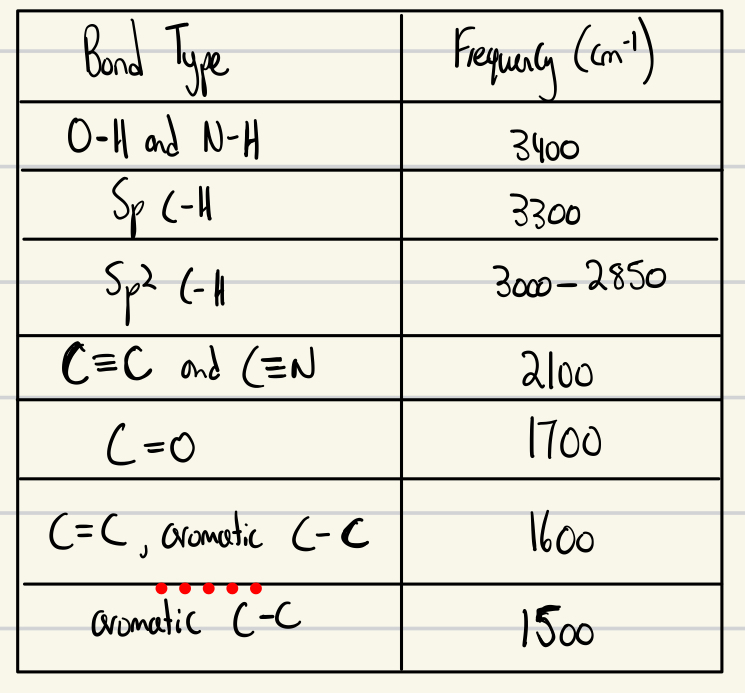 Bond Type Frequency (cm⁻¹)
O-H and N-H 3400
Sp C-H 3300
Sp² C-H 3000-2850
C≡C and C≡N 2100
C=O 1700
C=C, aromatic C-C 1600
aromatic C-C 1500